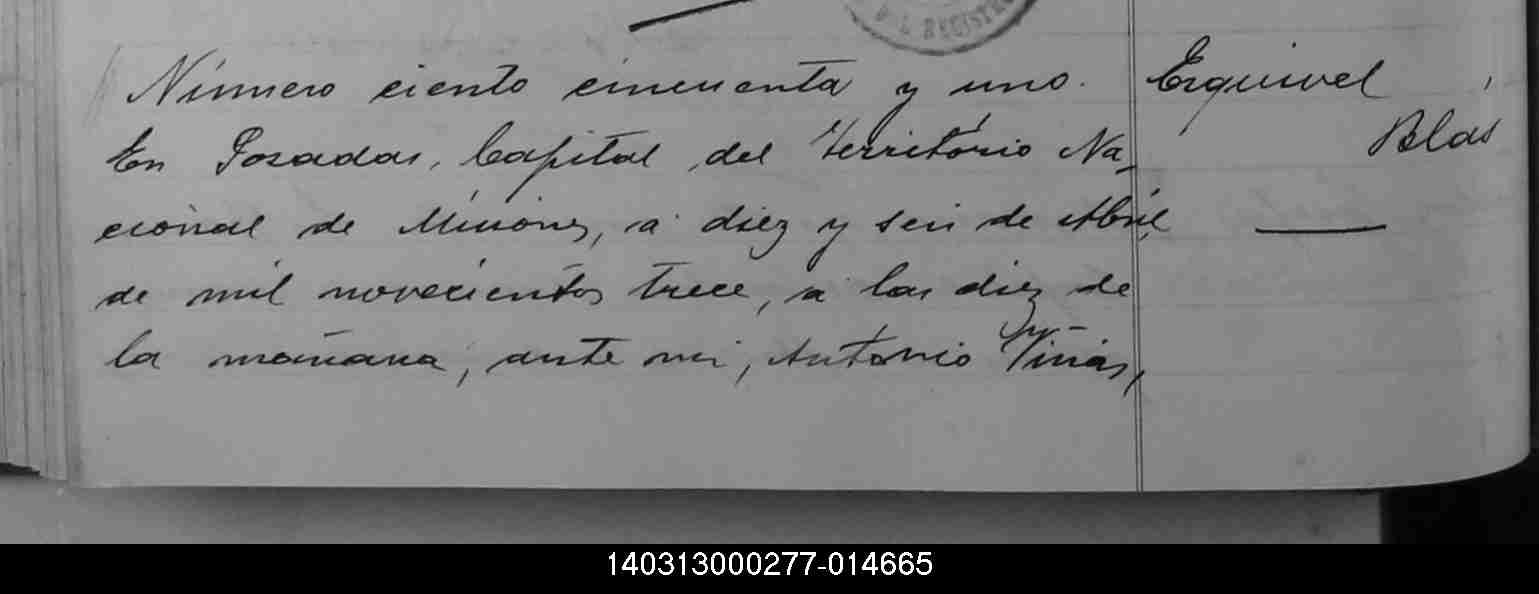 DEL REGISTRO
Número ciento cincuenta y uno.
En Posadas, Capital del Territorio Na-
cional de Misiones, á diez y seis de Abril
de mil novecientos trece, á las diez de
la mañana, ante mi, Antonio Viñas,
Esquivel
Blás
140313000277-014665